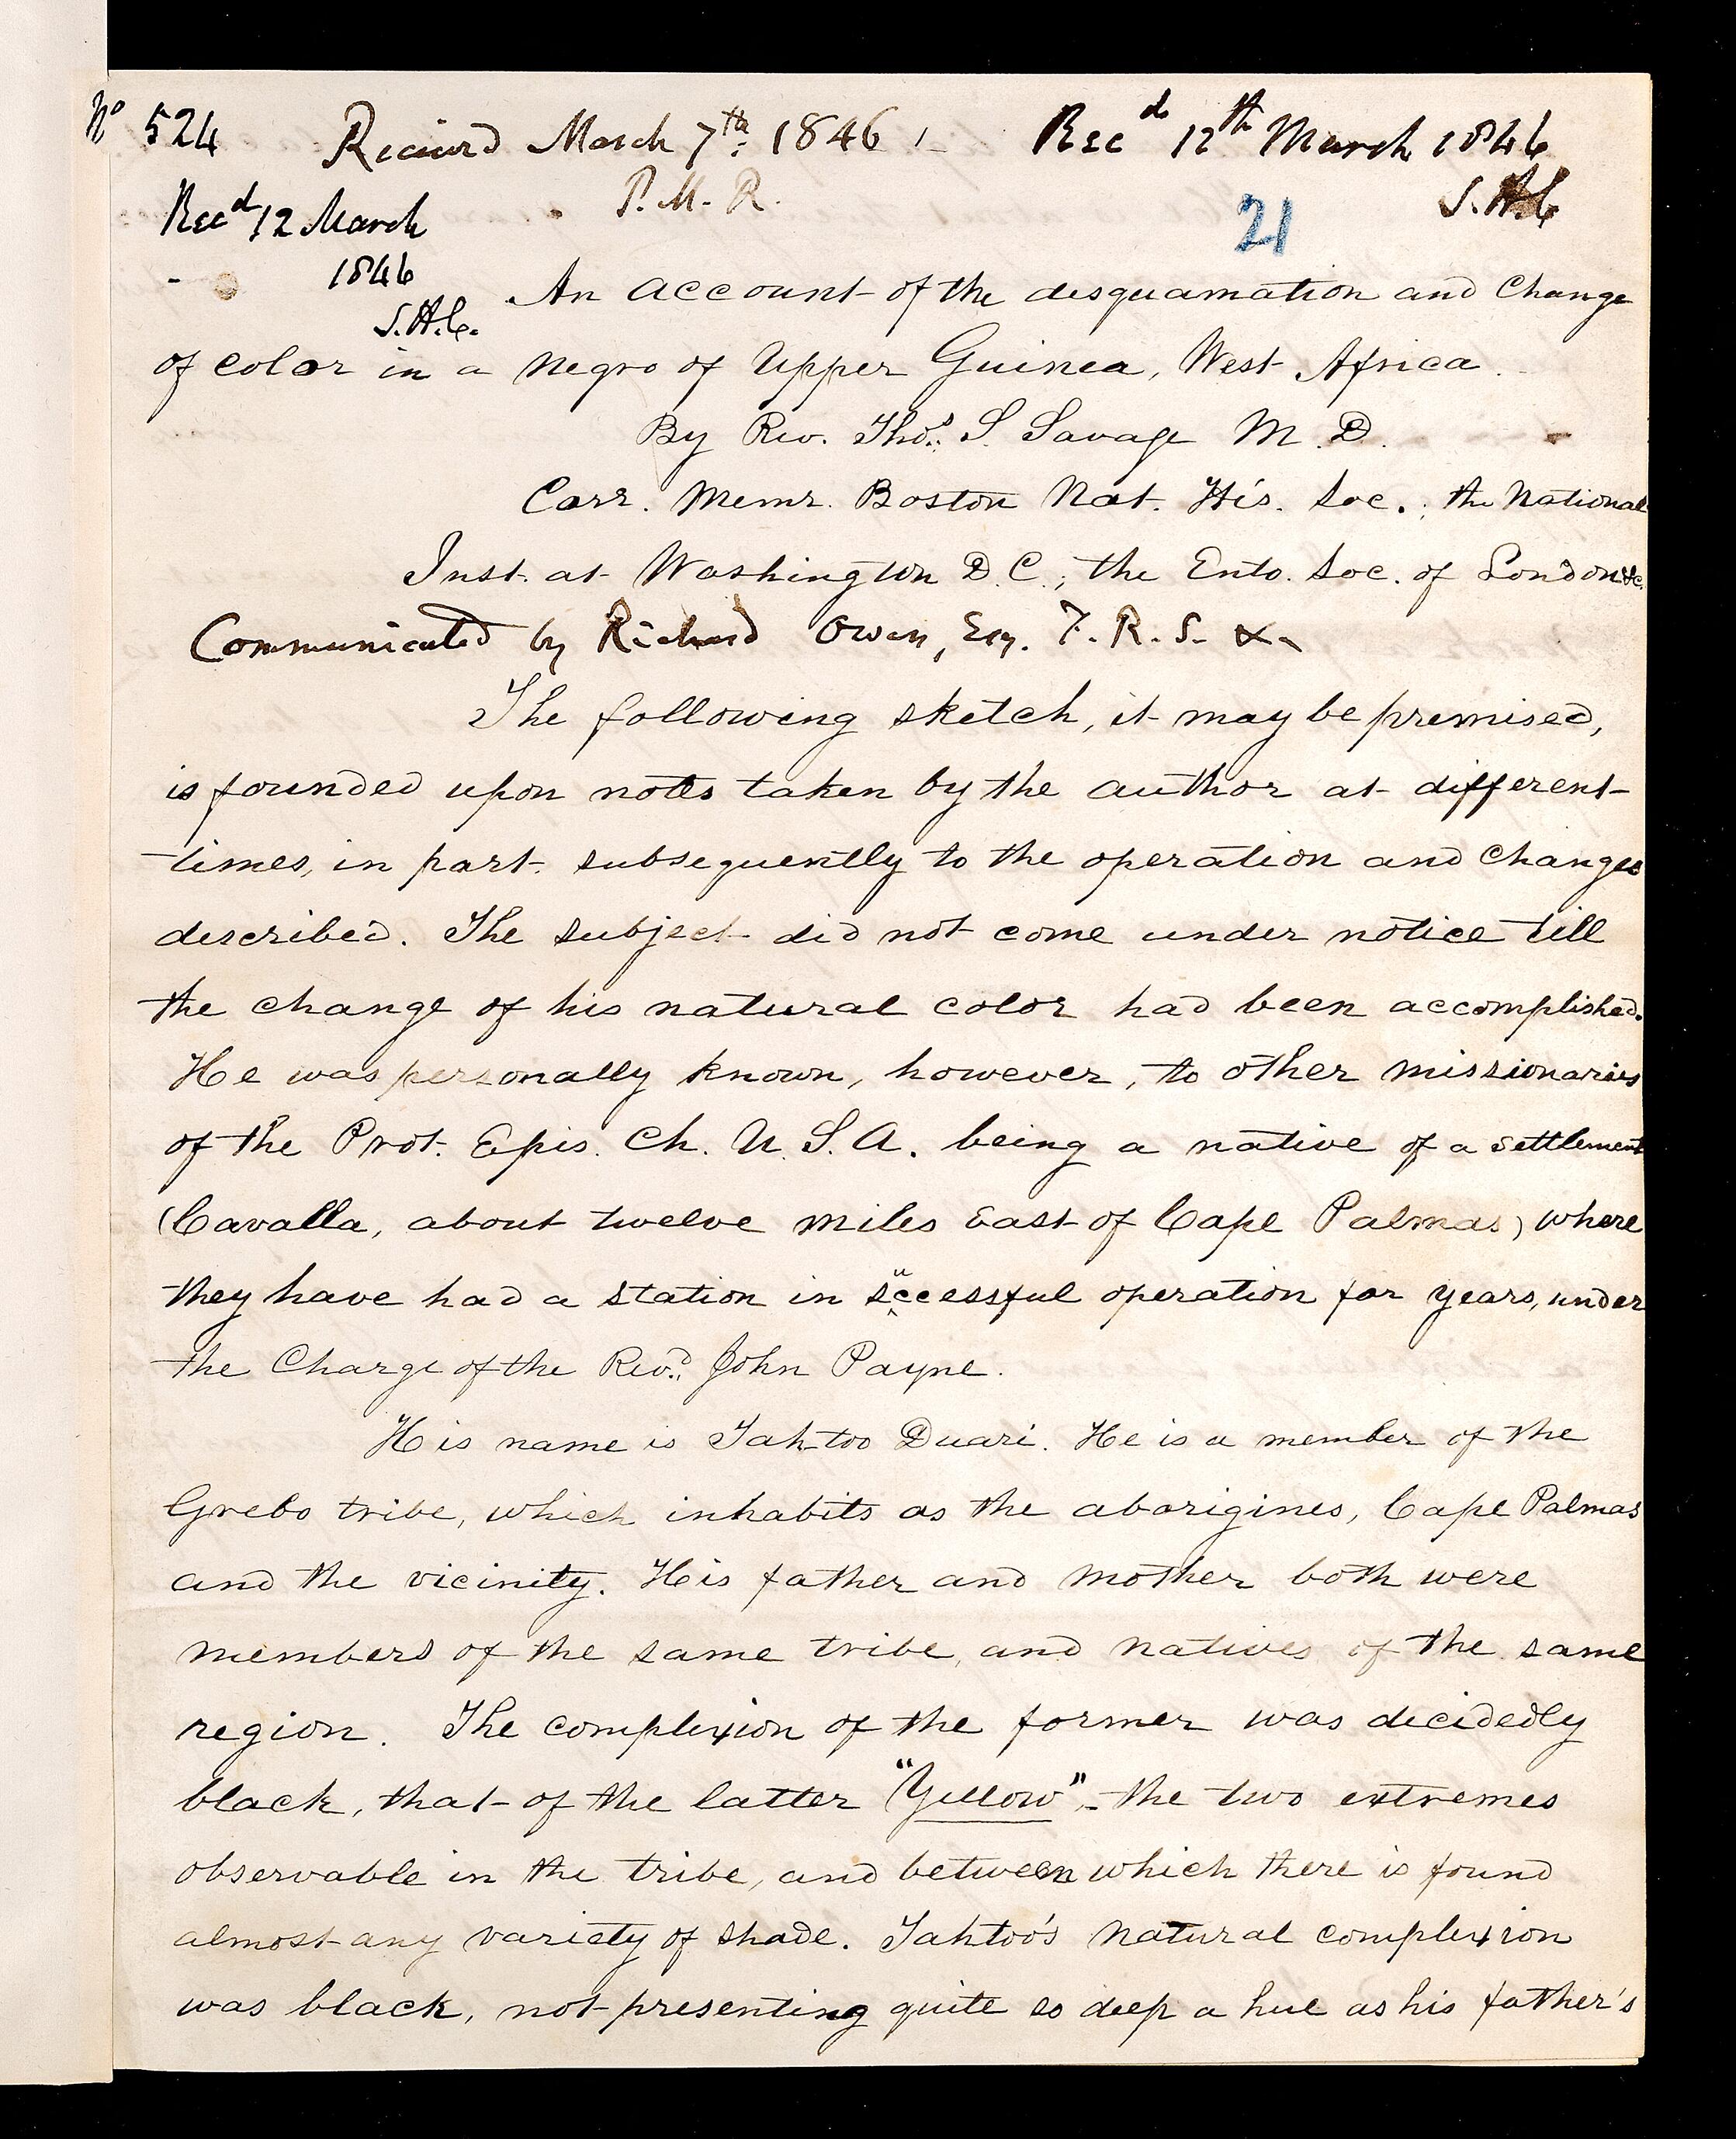 No 524 Received March 7th: 1846 Recd 12th March 1846
P. M. R.
S.H.C
Recd 12 March
1846
S.H.C.
21
An account of the desquamation and Change
of color in a negro of Upper Guinea, West Africa.
By Rev. Thos. S. Savage M.D.
Corr. Memr. Boston Nat. His. Soc.; the National
Inst. at Washington D.C.; the Ento. Soc. of London &c.
Communicated by Richard Owen, Esq. F.R.S. &c
The following sketch, it may be premised,
is founded upon notes taken by the author at different
times, in part subsequently to the operation and changes
described. The subject did not come under notice till
the change of his natural color had been accomplished.
He was personally known, however, to other missionaries
of the Prot. Epis. Ch. U.S.A. being a native of a settlement
(Cavalla, about twelve miles East of Cape Palmas) where
they have had a station in successful operation for years, under
the Charge of the Revd. John Payne.
His name is Tahtoo Duari. He is a member of the
Grebo tribe, which inhabits as the aborigines, Cape Palmas
and the vicinity. His father and mother both were
members of the same tribe, and natives of the same
region. The complexion of the former was decidedly
black, that of the latter "Yellow", - the two extremes
observable in the tribe, and between which there is found
almost any variety of shade. Tahtoo's natural complexion
was black, not presenting quite so deep a hue as his father's